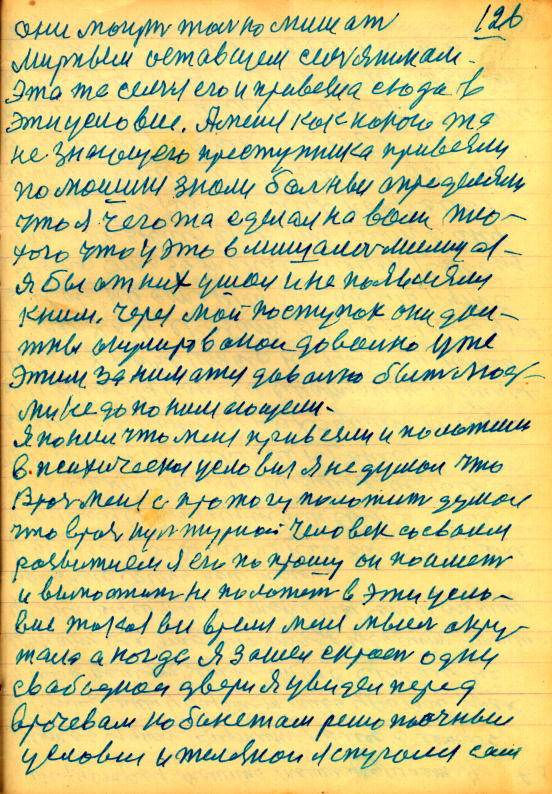 126
они могут только мишат
мирным оставщем сельянкам.
Эта же семья его и привезла сюда в
эти условие. А меня как какого жа
не знающего преступника привезли
по машини знали больны определяли
что я. чего жа сделал на воли пло-
хого что у это вмишалась милица-
я был от них ушол и не появляли
к ним. Через мой поступок они дол-
жны довольно уже
этим заниматся довольно быть людь
ми недопонимающеми.
Я понил что меня привезли и положили
в психическия условия я не думал что
врач меня положит думал
что врач культурной человек со своим
развитием я его попрошу он поймет
и выпостит не положет в эти усло-
вие такая вы время меня мысль окру-
жала а когда я зашел скрозь одни
свободной двери я увидел перед
врочевам кобинетам решоточный
условии и железной я спугался сам